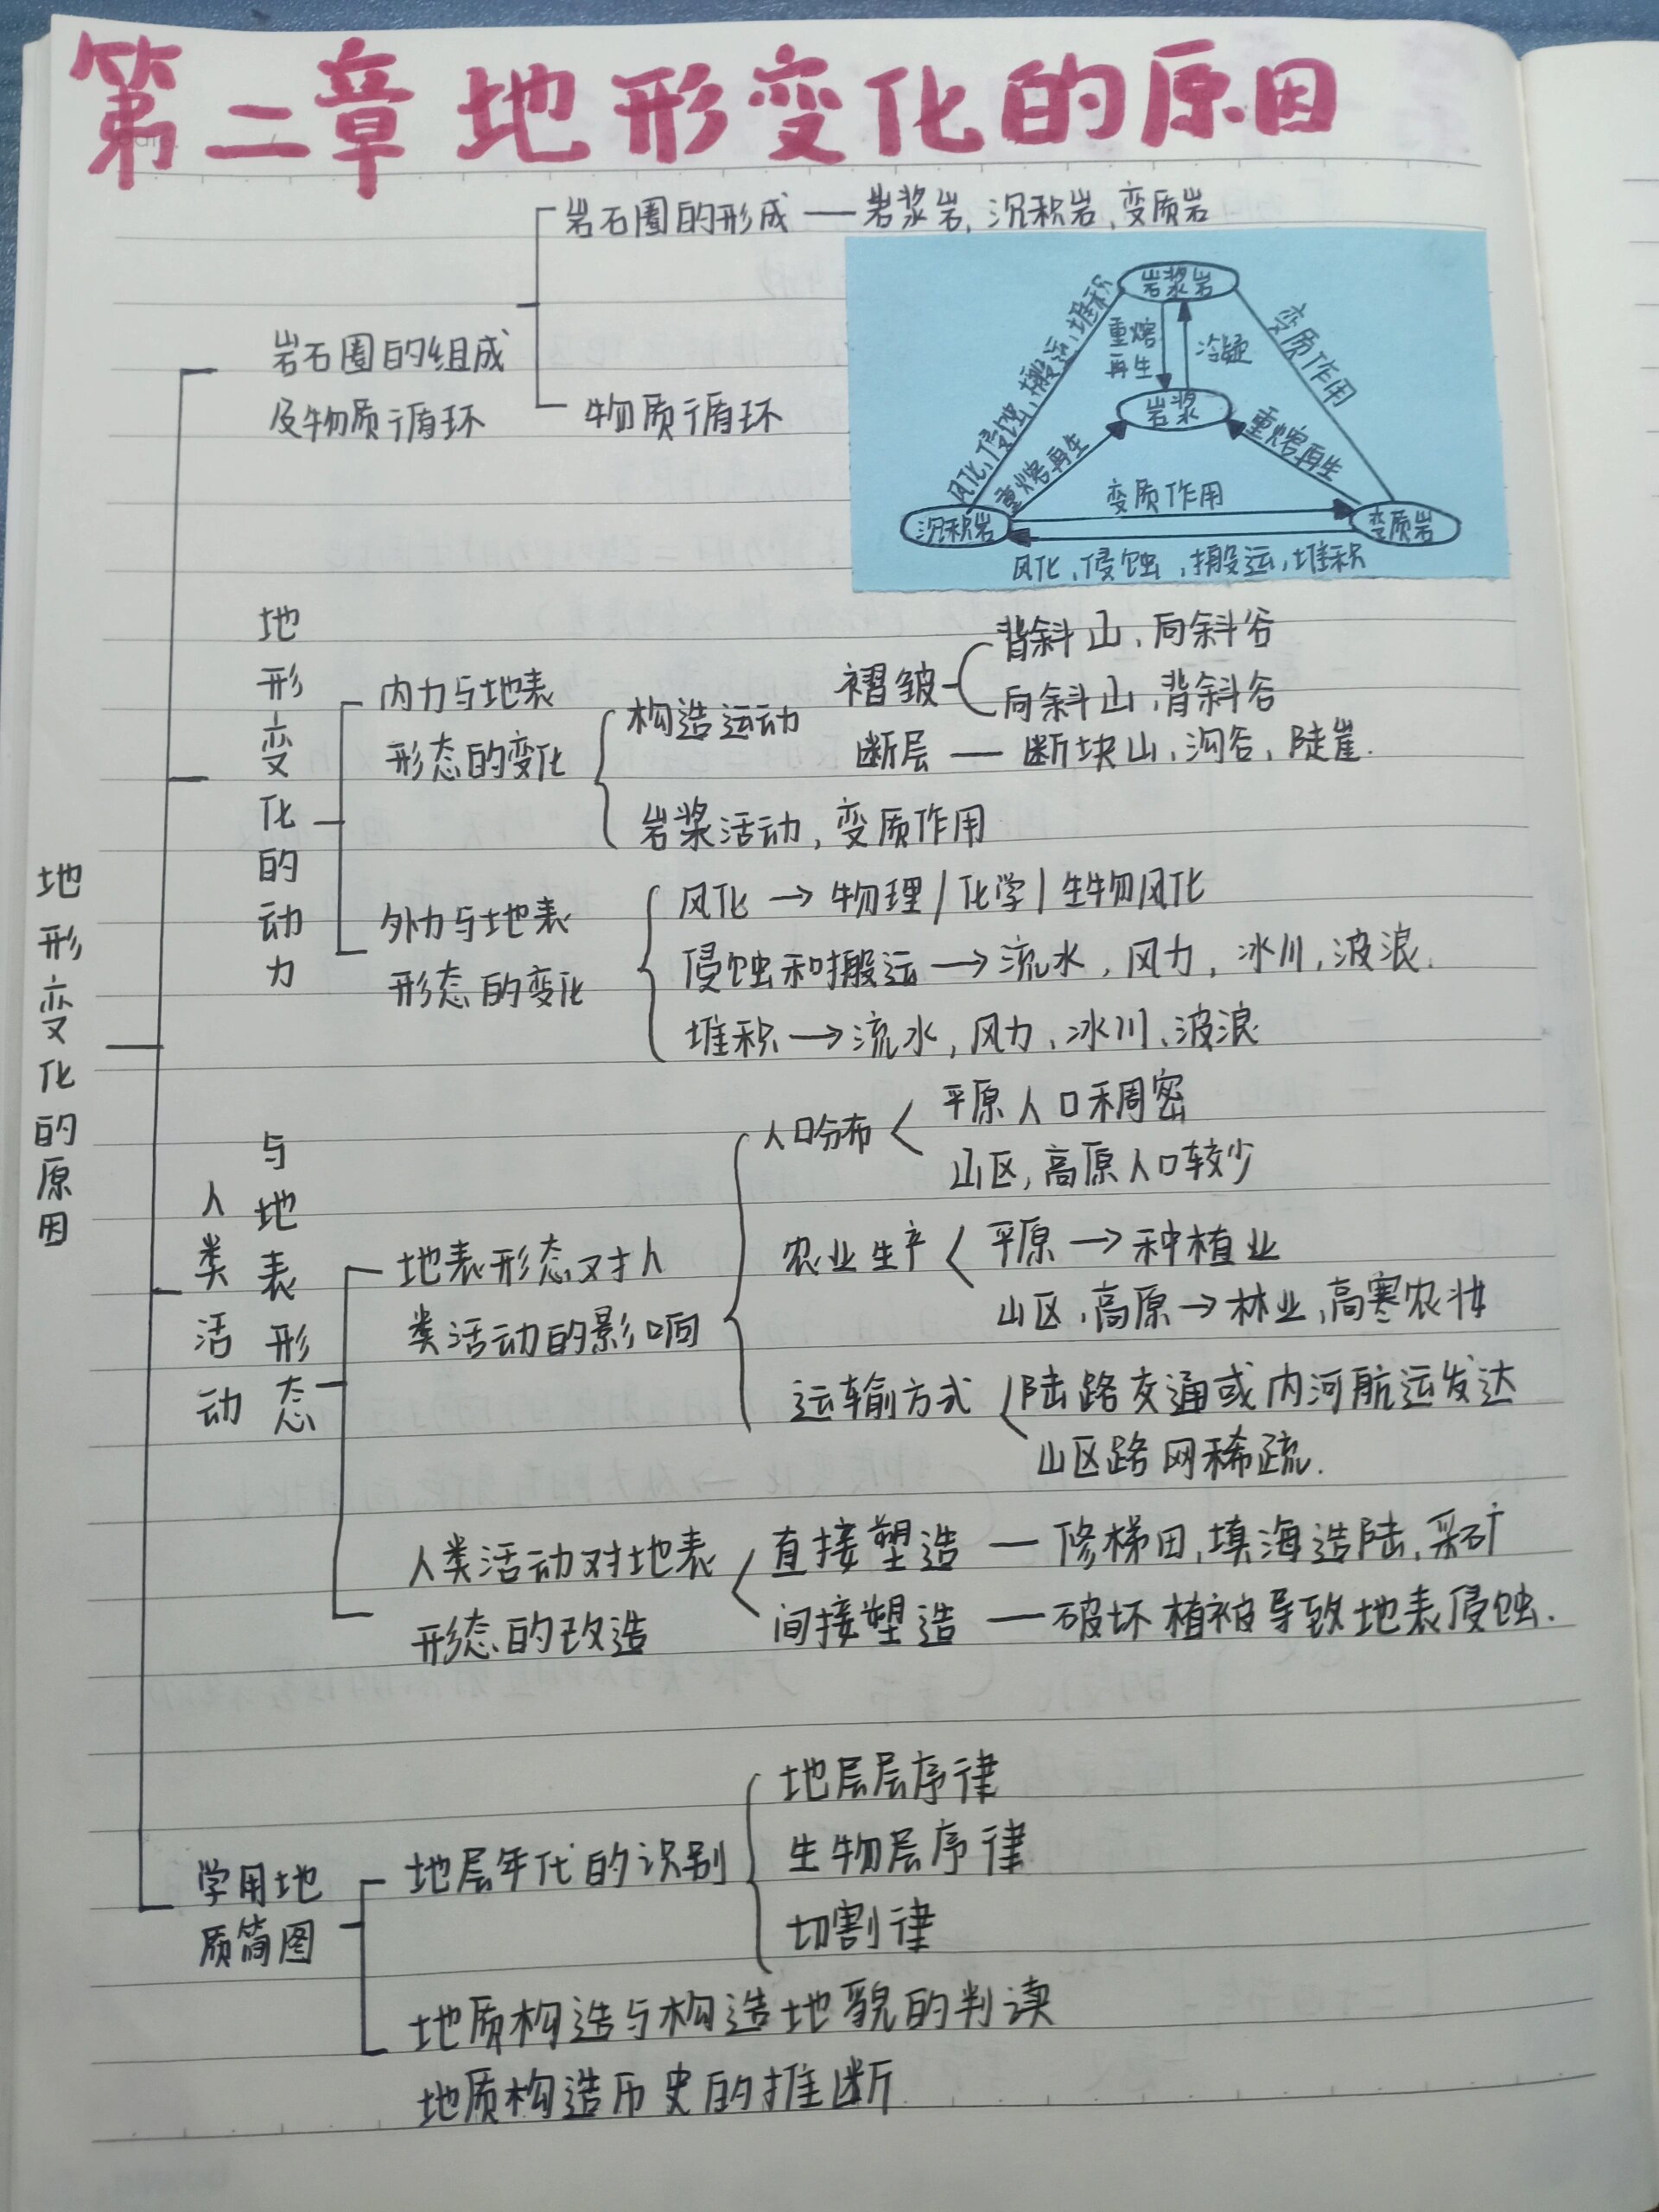 第二章 地形变化的原因
地形变化的原因
岩石圈的组成
及物质循环
岩石圈的形成 — 岩浆岩,沉积岩,变质岩
物质循环
岩浆岩
风化,侵蚀,搬运,堆积
重熔
再生
冷凝
变质作用
岩浆
重熔再生
重熔再生
沉积岩
变质作用
变质岩
风化,侵蚀,搬运,堆积
地形变化的动力
内力与地表
形态的变化
构造运动
褶皱
背斜山,向斜谷
向斜山,背斜谷
断层 — 断块山,沟谷,陡崖.
岩浆活动,变质作用
外力与地表
形态的变化
风化 → 物理/化学/生物风化
侵蚀和搬运 → 流水,风力,冰川,波浪.
堆积 → 流水,风力,冰川,波浪
人类活动
与地表形态
地表形态对人
类活动的影响
人口分布
平原人口稠密
山区,高原人口较少
农业生产
平原 → 种植业
山区,高原 → 林业,高寒农牧
运输方式
陆路交通或内河航运发达
山区路网稀疏.
人类活动对地表
形态的改造
直接塑造 — 修梯田,填海造陆,采矿
间接塑造 — 破坏植被导致地表侵蚀.
学用地
质简图
地层年代的识别
地层层序律
生物层序律
切割律
地质构造与构造地貌的判读
地质构造历史的推断